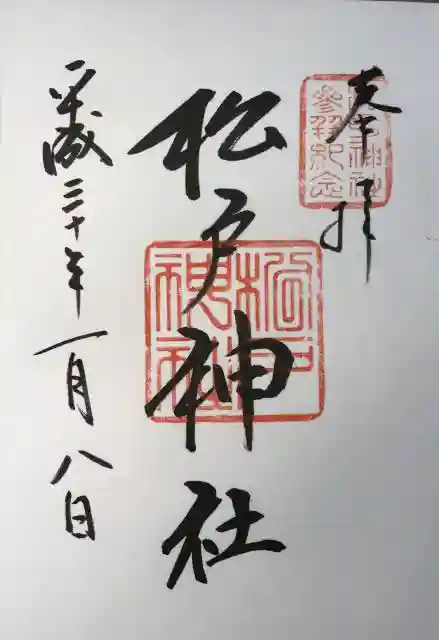 奉拝
松戸神社参拝記念
松戸神社
松戸神社
平成三十年一月八日